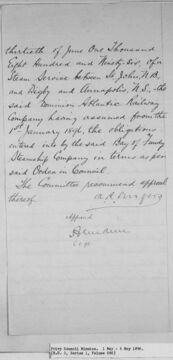 thirtieth of June One Thousand
Eight Hundred and Ninety six, of a
Steam Service between St. John, N.B.
and Digby and Annapolis, N.S. the
said Dominion Atlantic Railway
Company having assumed from the
1st January 1896, the obligations
entered into by the said Bay of Fundy
Steamship Company in terms as per
said Order in Council.
The Committee recommend approval
thereof.
Approved
Aberdeen
Privy Council Minutes, 1 May - 6 May 1896.
(R.G. 2, Series 1, Volume